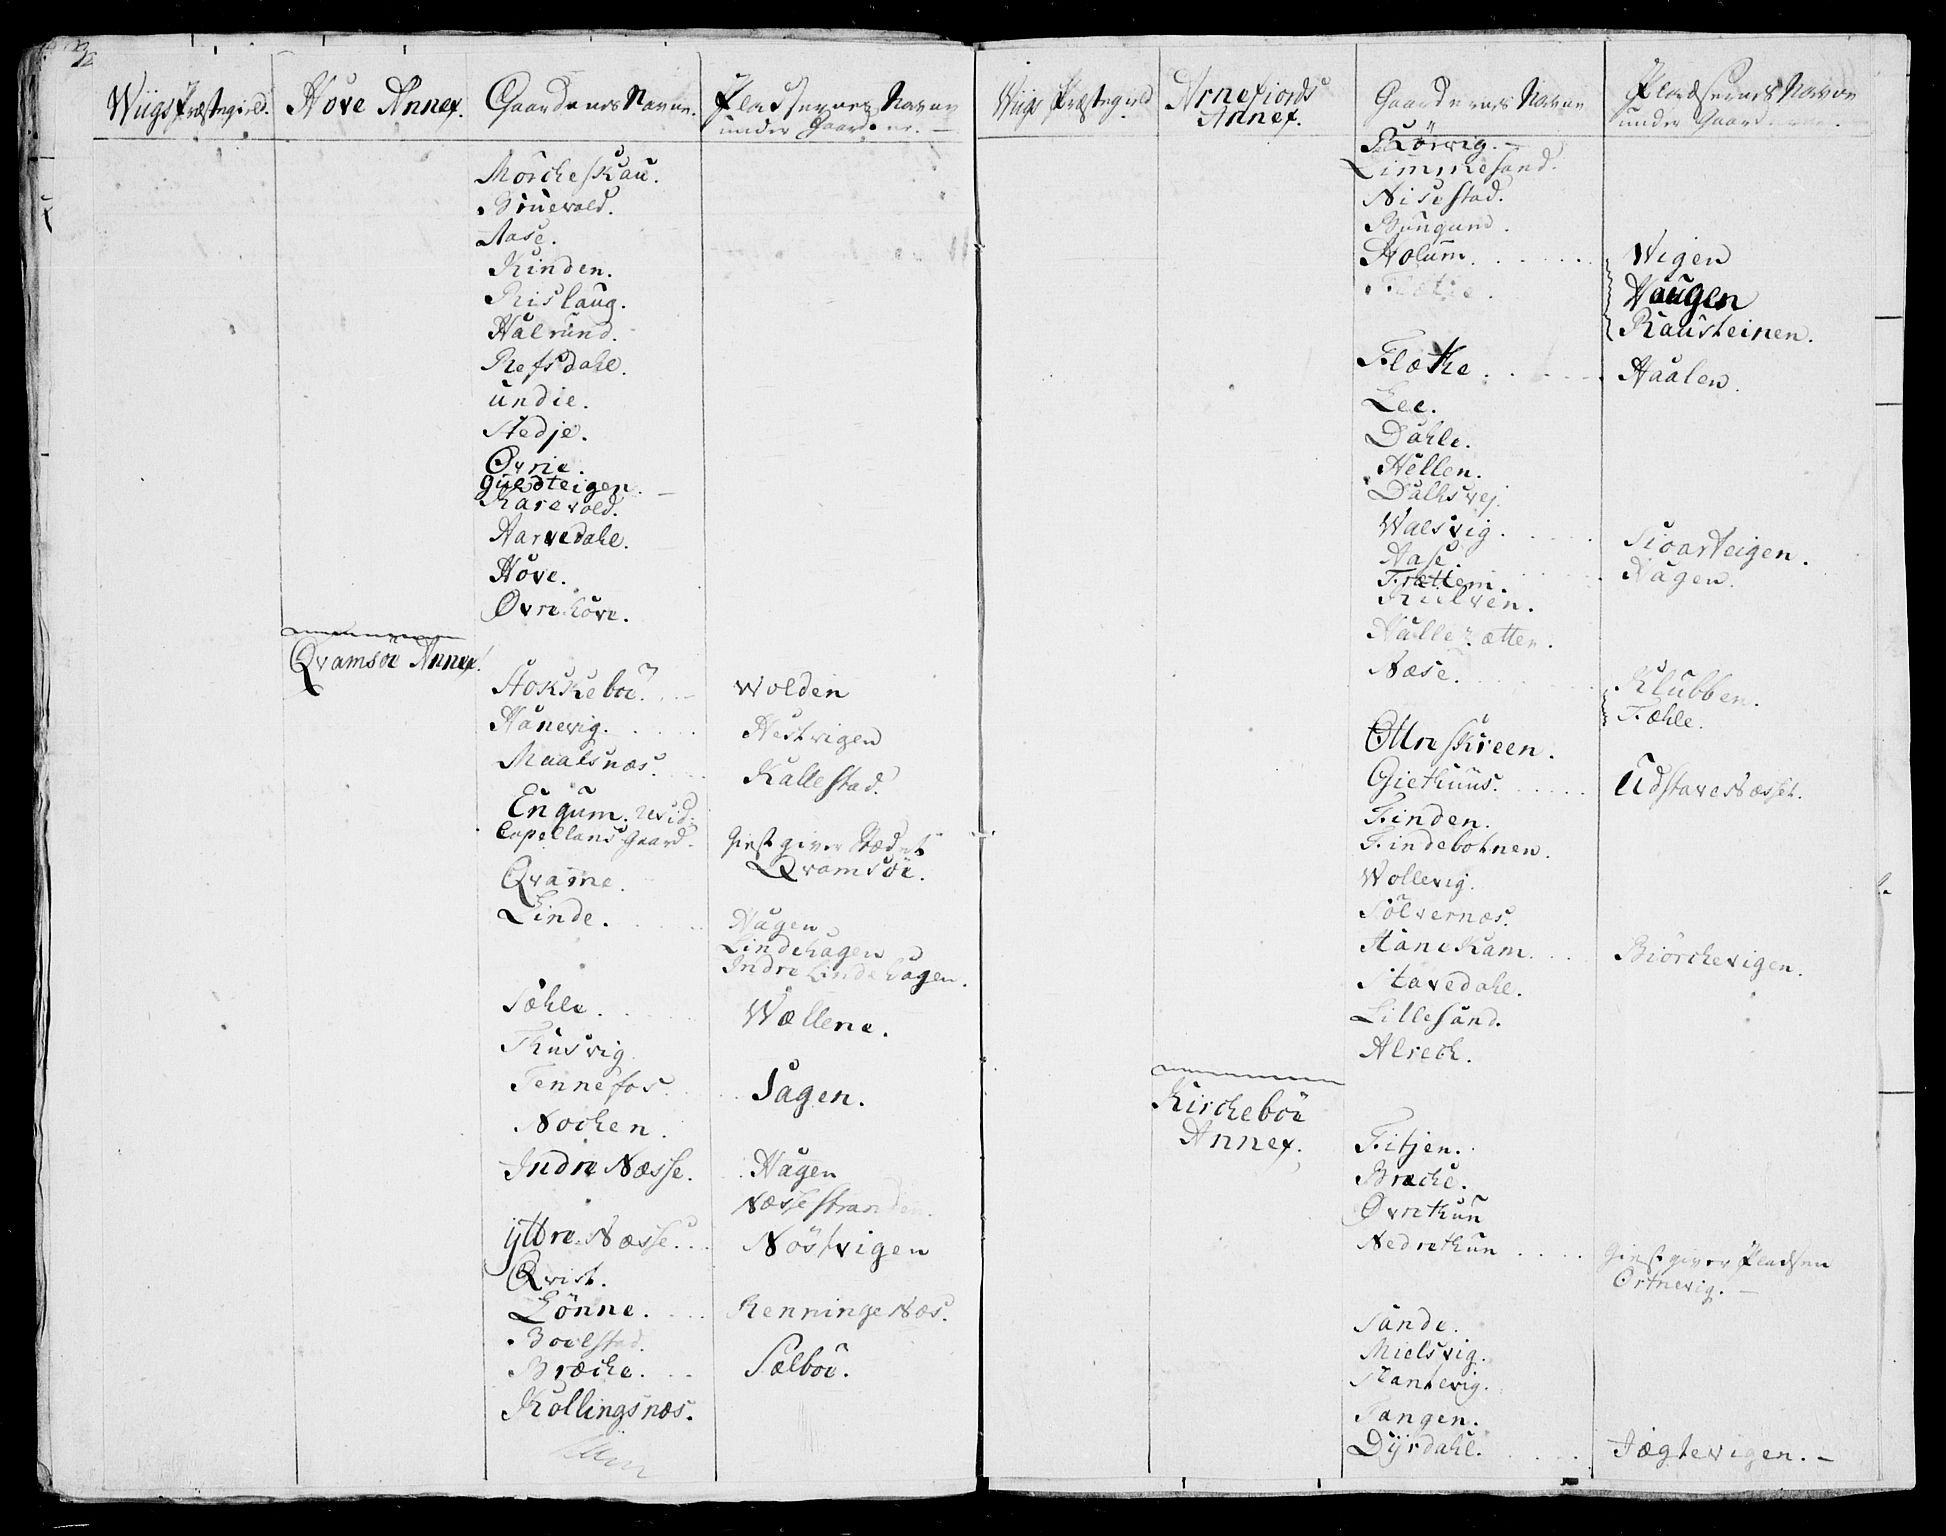 Wiigs Præstegield.
Hove Annex.
Gaardenes Navne.
Pladsernes Navne
under Gaardene. —
Morcheskau.
Bruevold.
Aase.
Kinden.
Rislaug.
Halrund.
Refsdahl.
undie.
Stedje.
Øvrie.
Guldteigen. —
Karevold.
Harvedahl.
Hove.
Øvrehove.
Qvamsöe Annex!
Stokkeböe. . . — Wolden
Hanevig. . . . . Hestvigen
Maalsnæs. . . . Kallestad.
Engum. wid.
Capellans Gaard. Giestgiver Stædet
Qvamsöe.
Qvamme.
Linde. . . . . Hagen
Lindehagen
Indre Lindehagen.
Sæhle. . . . . Wællene.
Thusvig
Tennefos. . . . Sagen.
Nochen.
Indre Næsse. . . Hagen
Næssestranden.
ÿttre Næsse. . . Nöstvigen
Qvist.
Lönne. . . . Renninge Næs.
Boelstad.
Bræche. . . . Sælboe.
Kollingsnæs.
Wiigs Præstegield
Arnefiords
Annex.
Gaardenes Navne
Pladsernes Navne
under Gaardene.
Rörvig. —
Limmesand.
Nisestad.
Bungum.
Holum. . . . . . . Wigen
Haugen
Rausteinen.
Flætke. . . . . . Haalen.
Lee.
Dahle.
Hellen.
Dalhsvej.
Walsvig. . . . . Sioarteigen.
Aase. . . . . . Hagen.
Frættem.
Kielven.
Hallesætter.
Næse. . . . . . . Klubben.
Fæhle.
Ottreskreen.
Giethuus. . . . . . Udstavesnæsset.
Finden.
Findebotnen.
Wollevig.
Sölvernæs.
Hanekam. . . . Biörchevigen.
Stavedahl.
Lillesand.
Alrech.
Kircheböe
Annex.
Fitjen.
Bræche.
Øvrethun
Nedrethun . . . . Giestgiver Pladsen
Ortnevig. —
Sande.
Mielsvig.
Stantevig.
Tangen.
Dÿrdahl. . . . . . Jægtevigen. —